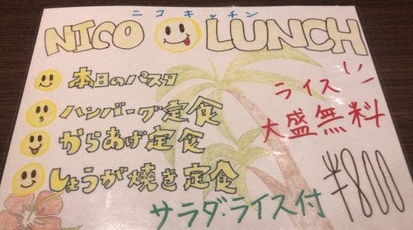 ニコキッチン
NICO LUNCH
本日のパスタ
ハンバーグ定食
からあげ定食
しょうが焼き定食
ライス
大盛無料
サラダ・ライス付
¥800